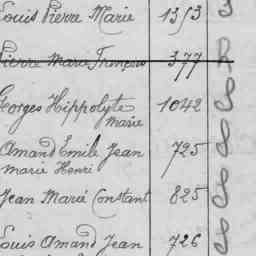 Louis Pierre Marie 1353
Pierre Marie François 377
Georges Hippolyte 1042
Marie
Amand Emile Jean 725
Marie Henri
Jean Marie Constant 825
Louis Amand Jean 726